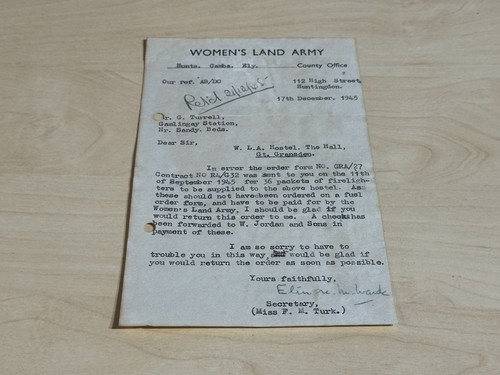 WOMEN'S LAND ARMY
Hunts. Cambs. Ely. County Office
Our ref. AH/DC 112 High Street,
Huntingdon.
17th December. 1945
Mr. G. Turvell,
Gamlingay Station,
Nr. Sandy. Beds.
Dear Sir,
W. L.A. Hostel. The Hall,
Gt. Gransden.
In error the order form NO. GRA/27
Contract NO HA/G32 was sent to you on the 11th
of September 1945 for 36 packets of fireligh-
ters to be supplied to the above hostel. As
these should not have been ordered on a fuel
order form, and have to be paid for by the
Women's Land Army, I should be glad if you
would return this order to me. A check has
been forwarded to W. Jordan and Sons in
payment of these.
I am so sorry to have to
trouble you in this way and would be glad if
you would return the order as soon as possible.
Yours faithfully,
Secretary,
(Miss F. M. Turk.)